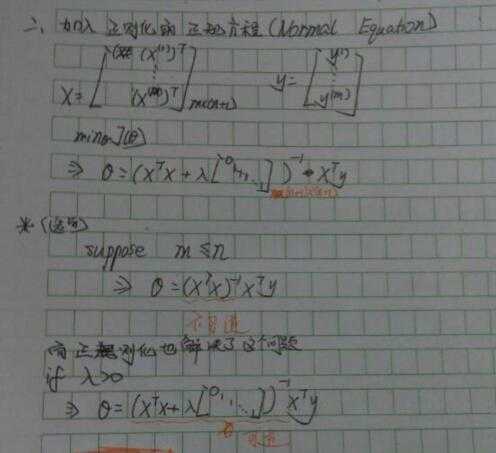 二、加入正则化的正规方程(Normal Equation)
X = [(x⁽¹⁾)ᵀ ⋮ (x⁽ᵐ⁾)ᵀ] m×(n+1) y = [y⁽¹⁾ ⋮ y⁽ᵐ⁾]
min J(θ)
⇒ θ = (XᵀX + λ[0 1 1 ⋱ 1])⁻¹ Xᵀy
(n+1)×(n+1)
* (选学)
suppose m ≤ n
⇒ θ = (XᵀX)⁻¹Xᵀy
不可逆
而正则化也解决了这个问题
if λ>0
⇒ θ = (XᵀX + λ[0 1 ⋱])⁻¹Xᵀy
可逆